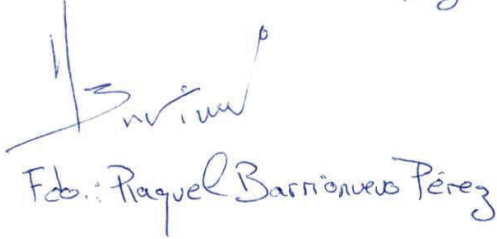 Fdo.: Raquel Barrionuevo Pérez